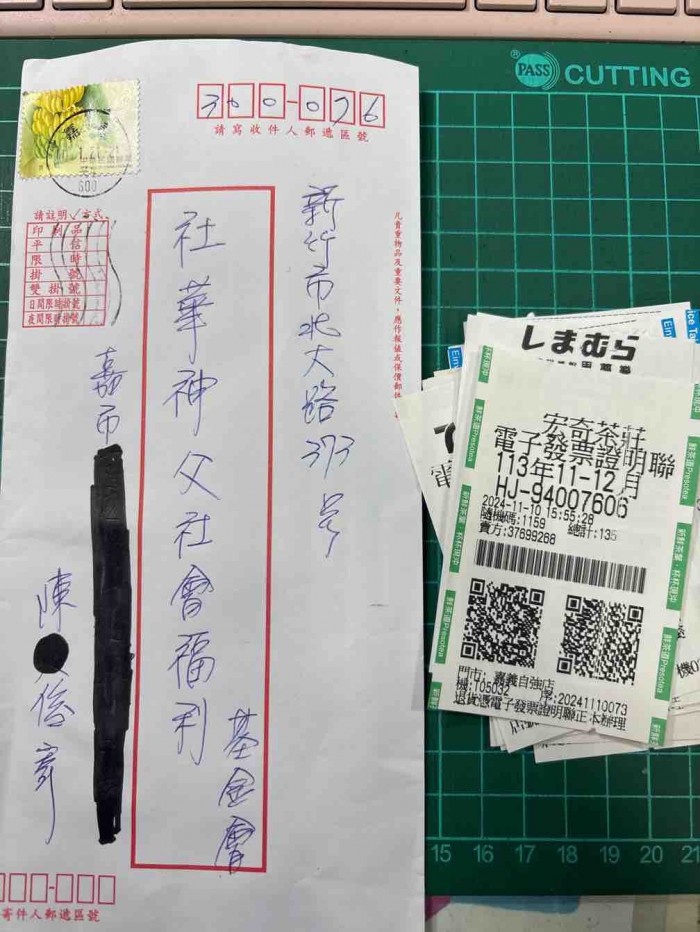 PASS
®
CUTTING
300-076
請寫收件人郵遞區號
請註明✓方式
印刷品
平信
限時
掛號
雙掛號
日間限時掛號
夜間限時掛號
新竹市北大路373号
社華神父社會福利
基金會
嘉市
陳
俊彥
寄件人郵遞區號
凡貴重物品及重要文件，應作報值或保價郵件
600
しまむら
宏奇茶莊
電子發票證明聯
113年11-12月
HJ-94007606
2024-11-10 15:55:28
隨機碼:1159 總計:135
賣方:37699268
門市: 嘉義自強店
機:T05032 序:20241110073
退貨憑電子發票證明聯正本辦理
鮮茶道Presotea
15 16 17 18 19 20 21